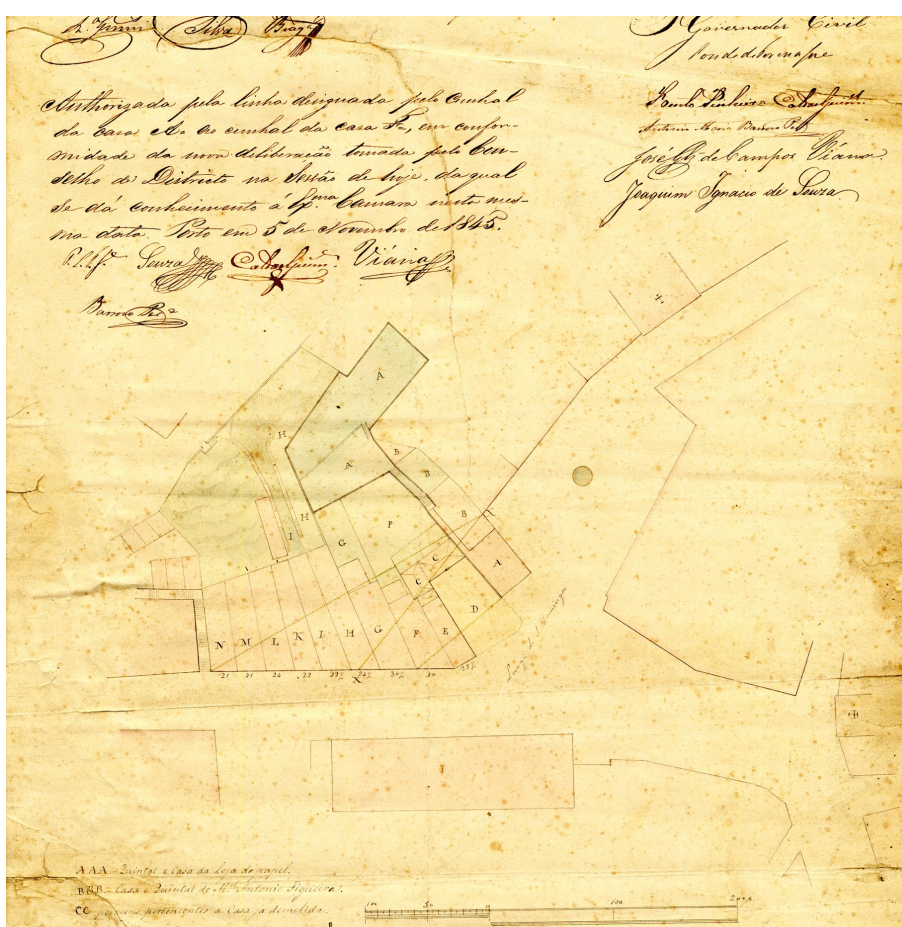 Silva
Governador Civil
Authorizada pela linha designada pelo Cunhal
da casa A= ao cunhal da casa F=, em confor-
midade da nova deliberação tomada pelo Con-
selho de Districto na Sessão de hoje, da qual
se dá conhecimento á Ex.ma Camara nesta mes-
ma data. Porto em 5 de Novembro de 1845.
Antonio Maria Barroso
José de Campos Viána
Joaquim Ignacio de Souza
Souza
Viána
Barroso
4.
A
H
A
B
B
B
H
F
I
G
C
C
A
D
N M L K I H G F E
21 21 24 22 24½ 30½ 30 25½
X
Largo de S. Domingos
AAA - Quintal e Casa da Loja do papel.
BBB - Casa e Quintal de Antonio Figueira.
CC pertencentes a Casa ja demolida.
100 50 100 200 p.